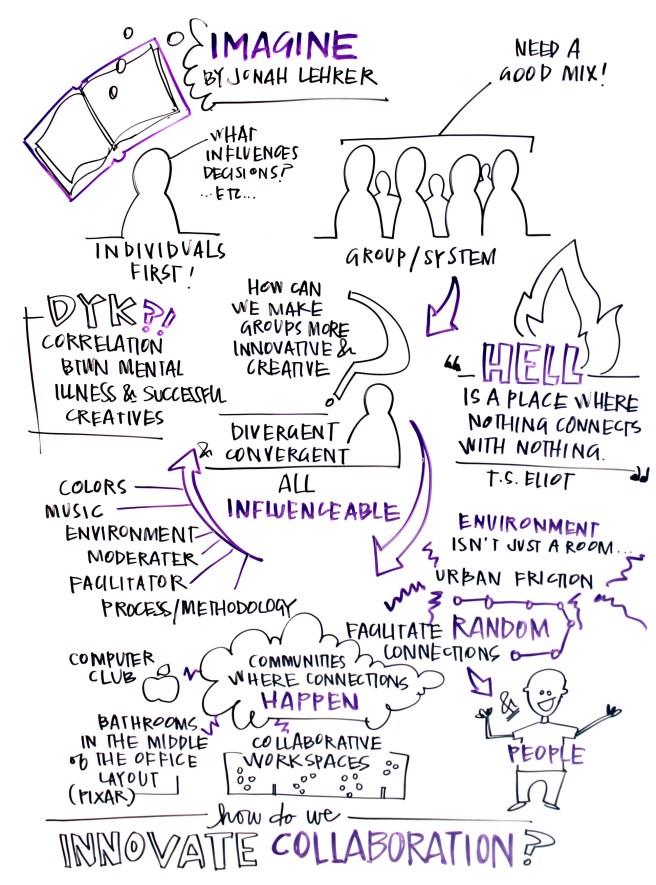 IMAGINE
BY JONAH LEHRER
NEED A
GOOD MIX!
WHAT
INFLUENCES
DECISIONS?
...ETC...
INDIVIDUALS
FIRST!
GROUP/SYSTEM
DYK?!
CORRELATION
BTWN MENTAL
ILLNESS & SUCCESSFUL
CREATIVES
HOW CAN
WE MAKE
GROUPS MORE
INNOVATIVE &
CREATIVE
?
DIVERGENT
& CONVERGENT
ALL
INFLUENCEABLE
"HELL
IS A PLACE WHERE
NOTHING CONNECTS
WITH NOTHING.
"
T.S. ELIOT
COLORS
MUSIC
ENVIRONMENT
MODERATER
FACILITATOR
PROCESS/METHODOLOGY
ENVIRONMENT
ISN'T JUST A ROOM...
URBAN FRICTION
FACILITATE RANDOM
CONNECTIONS
&
PEOPLE
COMPUTER
CLUB
COMMUNITIES
WHERE CONNECTIONS
HAPPEN
BATHROOMS
IN THE MIDDLE
of THE OFFICE
LAYOUT
(PIXAR)
COLLABORATIVE
WORKSPACES
how do we
INNOVATE COLLABORATION?